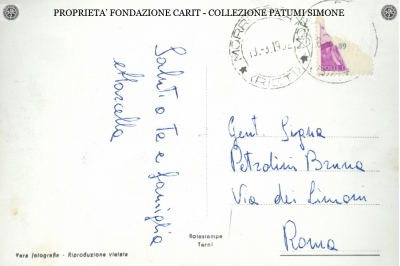 PROPRIETA' FONDAZIONE CARIT - COLLEZIONE PATUMI SIMONE
Saluti a Te e famiglia
Marcella
13.-3.19
(RIETI)
Gent. Sigra
Petrolini Bruna
Via dei Limoni
Roma
Rotostampa
Terni
Vera fotografia - Riproduzione vietata